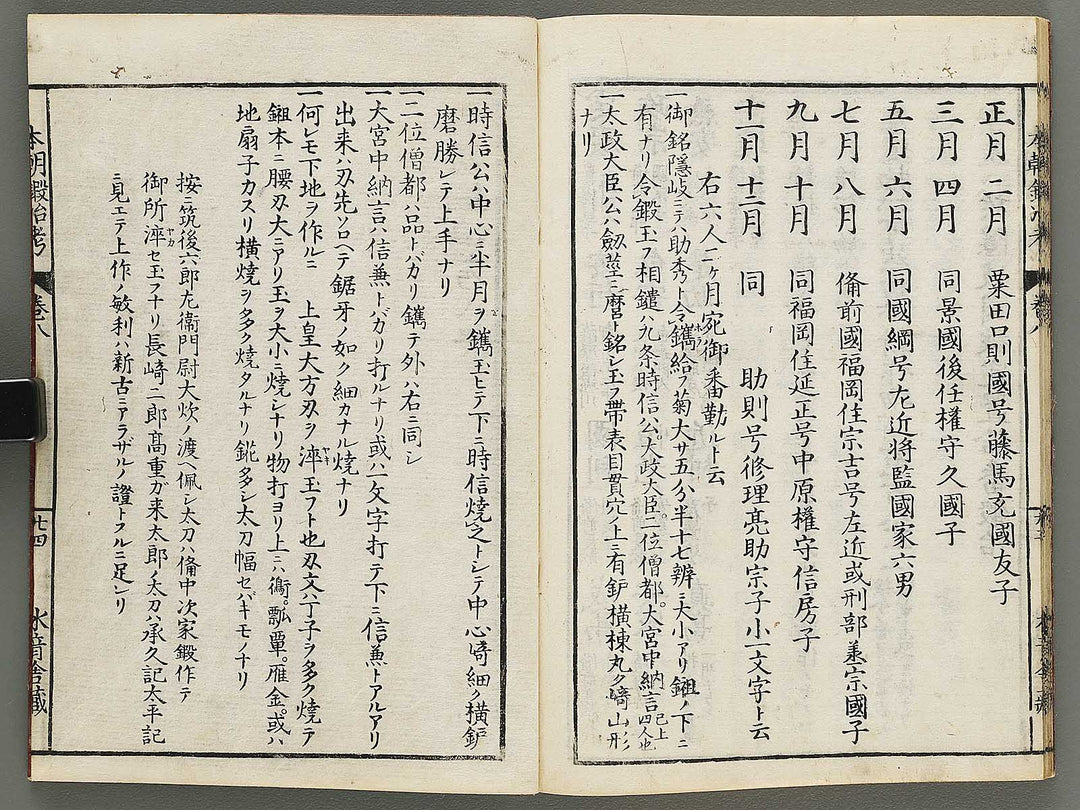 正月 二月 粟田口則國号藤馬充國友子
三月 四月 同景國後任權守久國子
五月 六月 同國綱号左近将監國家六男
七月 八月 備前國福岡住宗吉号左近或刑部丞宗國子
九月 十月 同福岡住延正号中原權守信房子
十一月 十二月 同 助則号修理亮助宗子小一文字ト云
右六人二ヶ月宛御番勤ルト云
一御銘隠岐ニテハ助秀ト令鐫給フ菊大サ五分半十七辨ニ大小アリ鎺ノ下ニ
有ナリ令鍛玉フ相鑓ハ九条時信公。大政大臣。二位僧都。大宮中納言已上四人也
一太政大臣公ハ劔莖ニ麿ト銘シ玉フ帶表目貫穴ノ上ニ有鈩横棟丸ク﨑山形
ナリ
一時信公ハ中心ニ半月ヲ鐫玉ヒテ下ニ時信焼之トシテ中心﨑細ク横鈩
磨勝レテ上手ナリ
一二位僧都ハ品トバカリ鐫テ外ハ右ニ同シ
一大宮中納言ハ信兼トバカリ打ルナリ或ハ一文字打テ下ニ信兼トアルアリ
出来ハ刃先ソロヘテ鋸牙ノ如ク細カナル焼ナリ
一何レモ下地ヲ作ルニ 上皇大方刃ヲ淬玉フト也刃文丁子ヲ多ク焼テ
鎺本ニ腰刃大ニアリ玉ヲ大小ニ焼シナリ物打ヨリ上ニハ鵆。瓢簟。雁金。或ハ
地扇子カスリ横焼ヲ多ク焼タルナリ鋩多シ太刀幅セバキモノナリ
按ニ筑後六郎左衛門尉大炊ノ渡ヘ佩シ太刀ハ備中次家鍛作テ
御所淬セ玉フナリ長﨑二郎髙重ガ来太郎ノ太刀ハ承久記太平記
ニ見エテ上作ノ敏利ハ新古ニアラザルノ證トスルニ足レリ
本朝鍛冶考 巻八 廿四 水音舎藏